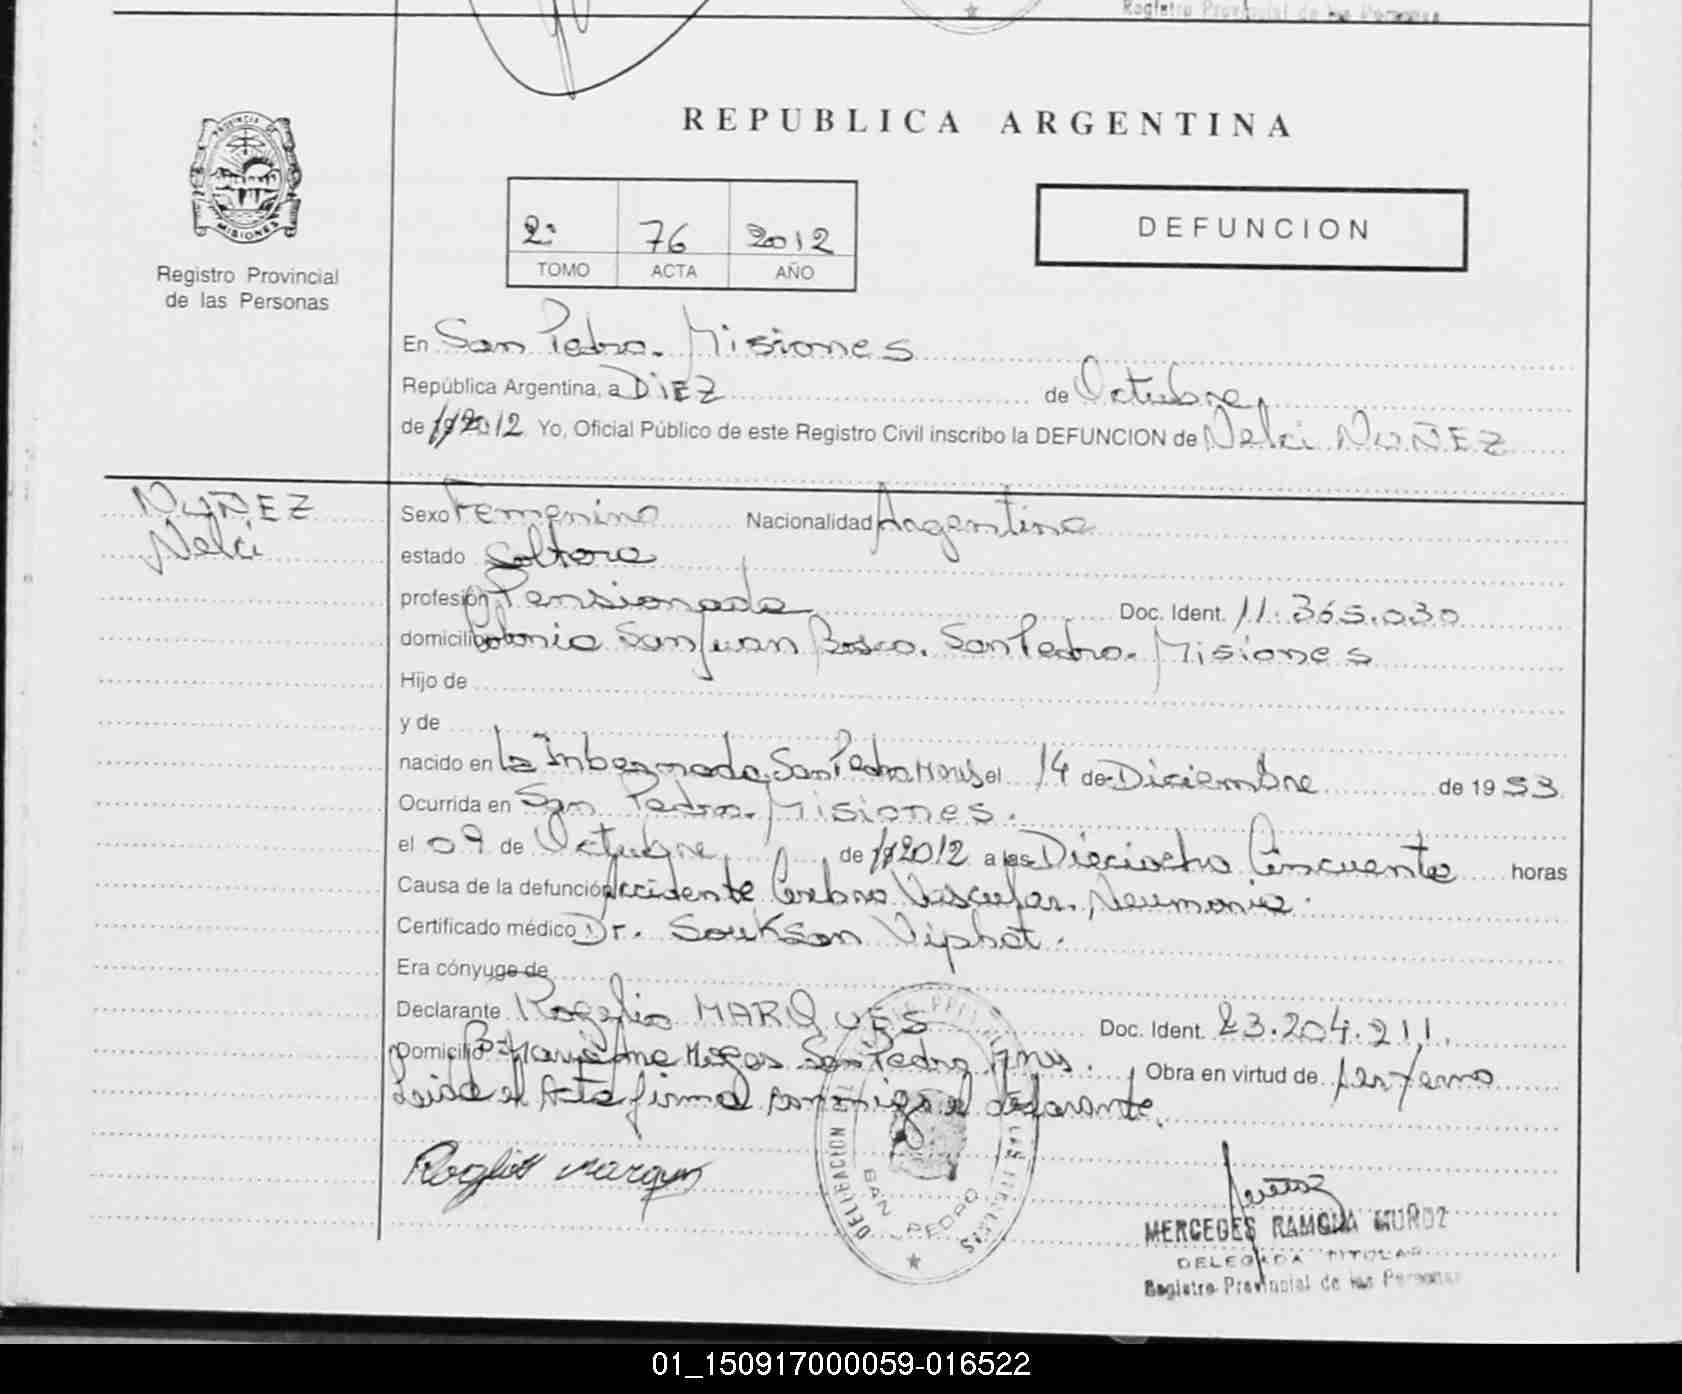 Registro Provincial de las Personas
REPUBLICA ARGENTINA
PROVINCIA DE
MISIONES
Registro Provincial
de las Personas
2º 76 2012
TOMO ACTA AÑO
DEFUNCION
En San Pedro. Misiones
República Argentina, a DiEZ de Octubre
de 2012 Yo, Oficial Público de este Registro Civil inscribo la DEFUNCION de Nelci NUÑEZ
NUÑEZ
Nelci
Sexo Femenino Nacionalidad Argentina
estado Soltera
profesión Pensionada Doc. Ident. 11.365.030
domicilio Colonia San Juan Bosco. San Pedro. Misiones
Hijo de
y de
nacido en San Pedro Mnes el 14 de Diciembre de 1953
Ocurrida en San Pedro. Misiones.
el 09 de Octubre de 2012 a las Dieciocho Cincuenta horas
Causa de la defunción Accidente Cerebro Vascular. Neumonia.
Certificado médico Dr. Soukson Viphat.
Era cónyuge de
Declarante Rogelio MARQUES Doc. Ident. 23.204.211.
Domicilio San Pedro Mns. Obra en virtud de
Leida el Acta firma conmigo el declarante.
DELEGACION SAN PEDRO
MERCEDES RAMONA MUÑOZ
DELEGADA TITULAR
Registro Provincial de las Personas
01_150917000059-016522